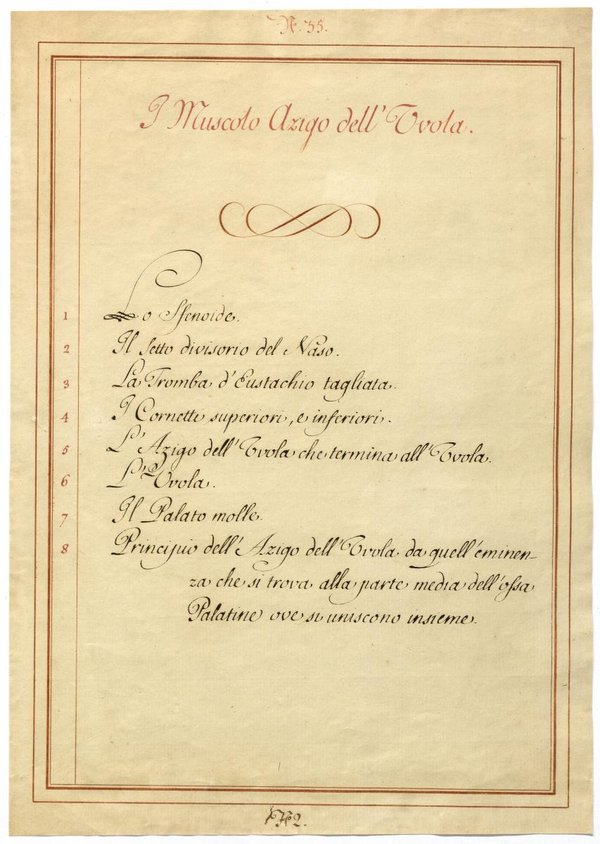 N. 35.
I Muscolo Azigo dell' Uvola.
1 Lo Sfenoide.
2 Il setto divisorio del Naso.
3 La Tromba d'Eustachio tagliata.
4 I Cornetti superiori, e inferiori.
5 L'Azigo dell'Uvola che termina all'Uvola.
6 L'Uvola.
7 Il Palato molle.
8 Principio dell'Azigo dell'Uvola da quell'eminen-
za che si trova alla parte media dell'ossa
Palatine ove si uniscono insieme.